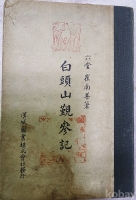 六堂 崔南善著
白頭山覲參記
漢城圖書株式會社發行
kobay